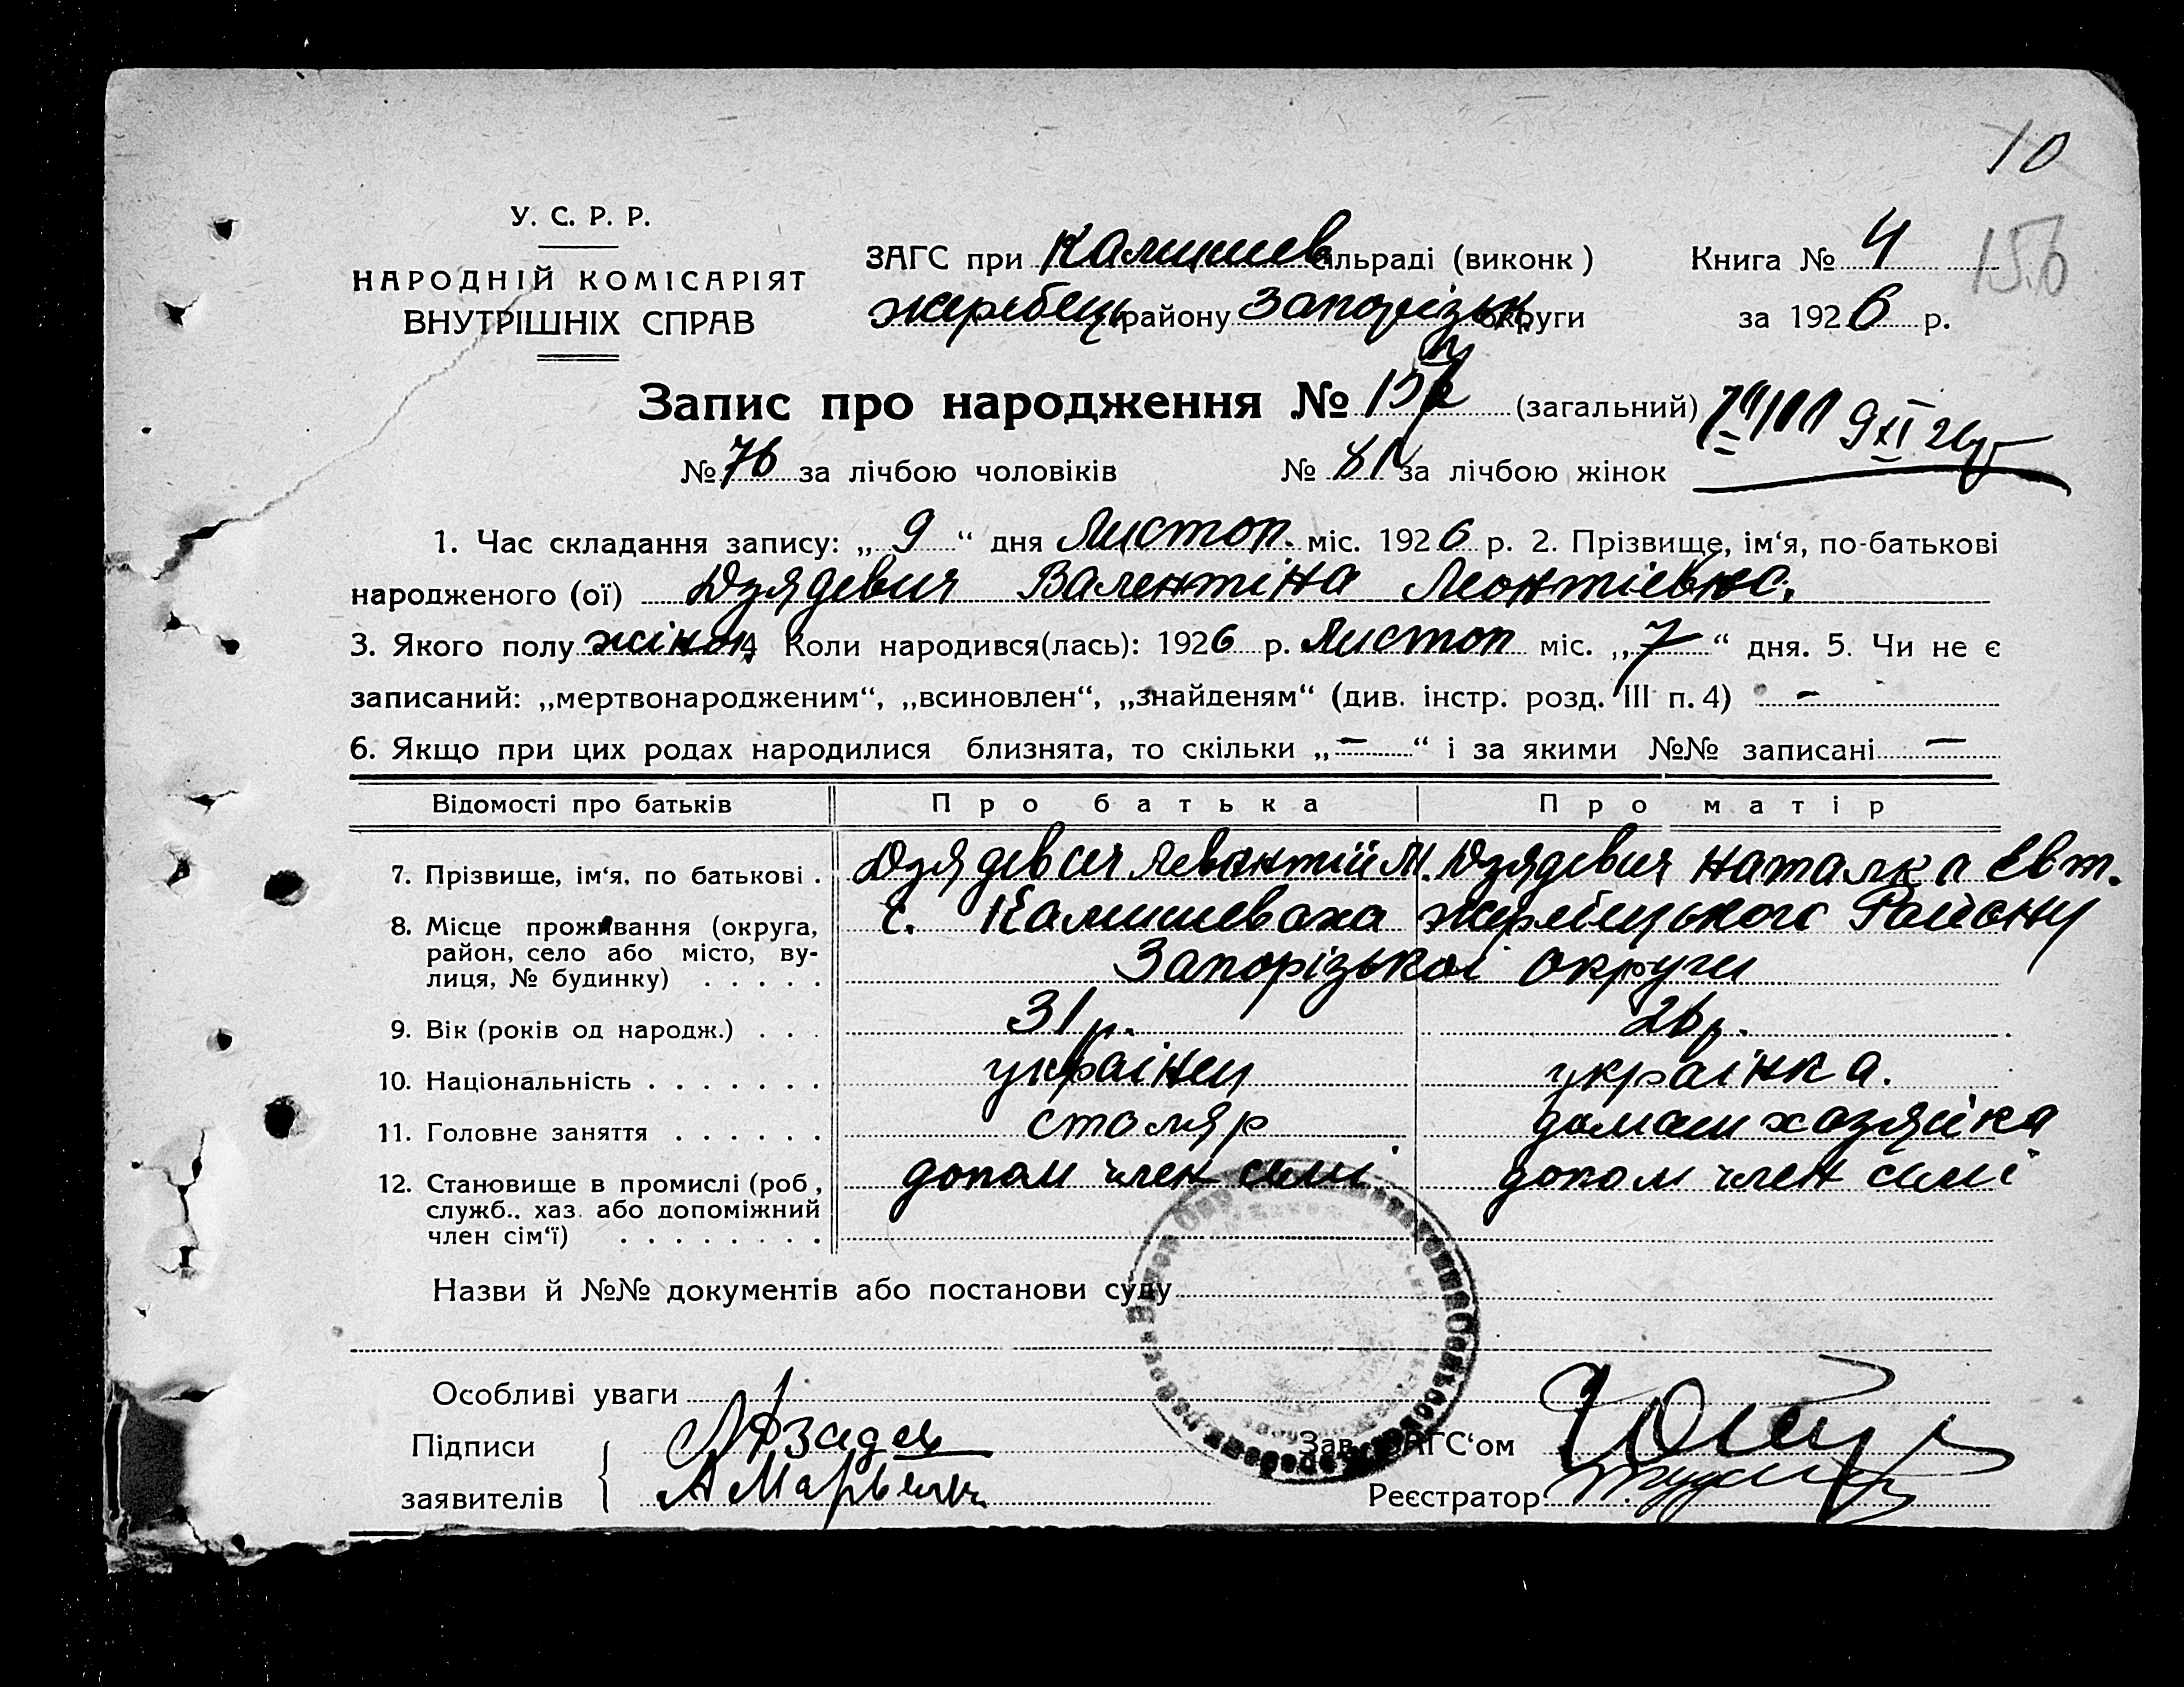 10
У. С. Р. Р.
НАРОДНІЙ КОМІСАРІЯТ
ВНУТРІШНІХ СПРАВ
ЗАГС при Камишев сільраді (виконк)
Жеребець району Запорізьк округи
Книга № 4
156
за 1926 р.
Запис про народження № (загальний)
9 XI 26
№ 76 за лічбою чоловіків № 81 за лічбою жінок
1. Час складання запису: „ 9 “ дня Листоп. міс. 1926 р. 2. Прізвище, ім‘я, по-батькові
народженого (ої) Дзядевич Валентіна Леонтіевна.
3. Якого полу жіноч 4 Коли народився(лась): 1926 р. Листоп міс. „ 7 “ дня. 5. Чи не є
записаний: „мертвонародженим“, „всиновлен“, „знайденям“ (див. інстр. розд. III п. 4) –
6. Якщо при цих родах народилися близнята, то скільки „ – “ і за якими №№ записані –
Відомості про батьків Про батька Про матір
7. Прізвище, ім‘я, по батькові . Дзядевич Левонтій М. Дзядевич Наталка Евт.
8. Місце проживання (округа, с. Камишеваха Жеребецького Району
район, село або місто, ву- Запорізькоі округи
лиця, № будинку) . . . . .
9. Вік (років од народж.) . . . 31 р. 26 р.
10. Національність . . . . . . . українец українка.
11. Головне заняття . . . . . . столяр домаш хазяйка
12. Становище в промислі (роб, допом член симі допом член симі
служб.. хаз. або допоміжний
член сім‘ї) . . . . . . . .
Назви й №№ документів або постанови суду
Особливі уваги
Підписи
заявителів
Зав. ЗАГС‘ом
Реєстратор